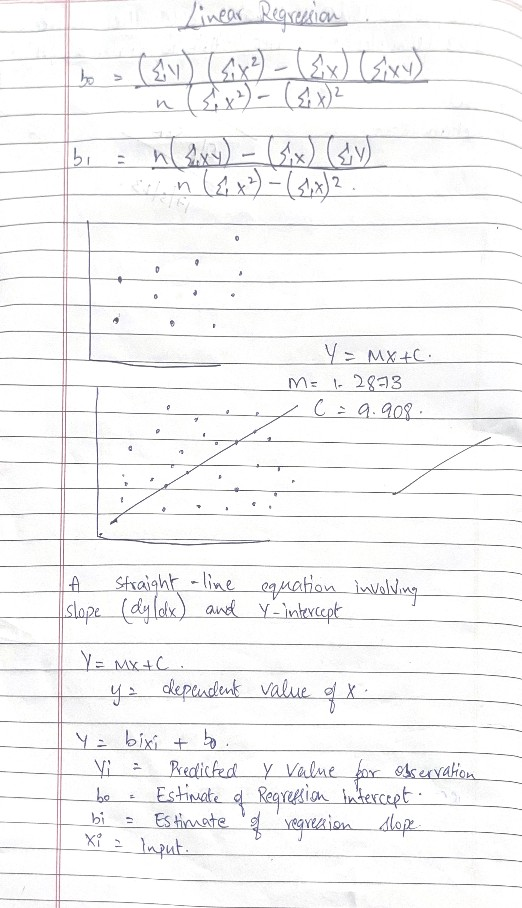 Linear Regression.
b0 = (ΣY) (Σx²) - (Σx) (Σxy)
n (Σx²) - (Σx)²
b1 = n(Σxy) - (Σx) (Σy)
n (Σx²) - (Σx)².
Y = Mx+C.
M = 1.2873
C = 9.908.
A straight-line equation involving
slope (dy/dx) and Y-intercept
Y = Mx+C.
y = dependent value of x.
Y = bixi + bo.
Yi = Predicted Y value for observation
bo = Estimate of Regression intercept.
bi = Estimate of regression slope.
Xi = Input.